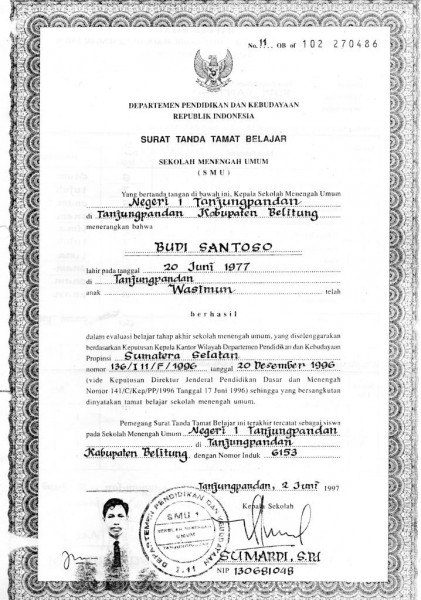 No. 11 OB of 102 270486
DEPARTEMEN PENDIDIKAN DAN KEBUDAYAAN
REPUBLIK INDONESIA
SURAT TANDA TAMAT BELAJAR
SEKOLAH MENENGAH UMUM
( S M U )
Yang bertanda tangan di bawah ini, Kepala Sekolah Menengah Umum
Negeri 1 Tanjungpandan
di Tanjungpandan Kabupaten Belitung
menerangkan bahwa
BUDI SANTOSO
lahir pada tanggal 20 Juni 1977
di Tanjungpandan
anak Wasimun telah
berhasil
dalam evaluasi belajar tahap akhir sekolah menengah umum, yang diselenggarakan
berdasarkan Keputusan Kepala Kantor Wilayah Departemen Pendidikan dan Kebudayaan
Propinsi Sumatera Selatan
nomor 136/I11/F/1996 tanggal 20 Desember 1996
(vide Keputusan Direktur Jenderal Pendidikan Dasar dan Menengah
Nomor 141/C/Kep/PP/1996 Tanggal 17 Juni 1996) sehingga yang bersangkutan
dinyatakan tamat belajar sekolah menengah umum.
Pemegang Surat Tanda Tamat Belajar ini terakhir tercatat sebagai siswa
pada Sekolah Menengah Umum Negeri 1 Tanjungpandan
di Tanjungpandan
Kabupaten Belitung, dengan Nomor Induk 6153
Tanjungpandan, 2 Juni 1997
Kepala Sekolah
DEPARTEMEN PENDIDIKAN DAN KEBUDAYAAN
SMU 1
SEKOLAH MENENGAH
UMUM
TANJUNGPANDAN
I.11
SUMARDI, S.Pd
NIP 130681048